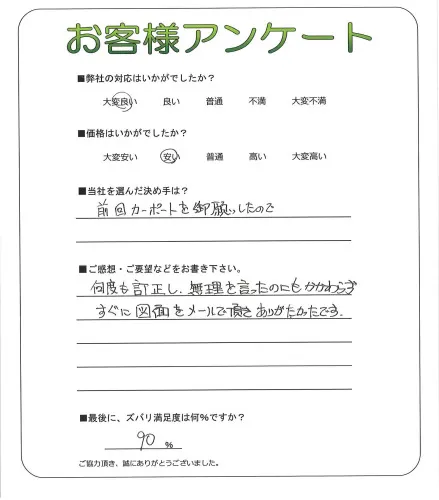 お客様アンケート
■弊社の対応はいかがでしたか?
大変良い 良い 普通 不満 大変不満
■価格はいかがでしたか?
大変安い 安い 普通 高い 大変高い
■当社を選んだ決め手は?
前回カーポートを御願いしたので
■ご感想・ご要望などをお書き下さい。
何度も訂正し、無理を言ったのにもかかわらず
すぐに図面をメールで頂きありがたかったです.
■最後に、ズバリ満足度は何%ですか?
90 %
ご協力頂き、誠にありがとうございました。